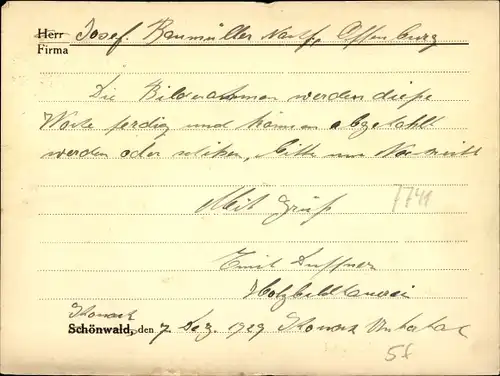 Herr Josef Baumüller Nachf., Offenburg
Firma
Die Bilderahmen werden diese
Woche ferdig und können abgehohlt
werden oder schiken, bitte um Nachricht
Mit Gruß
7741
Emil Duffner
Holzbildhauerei
Schonach
Schönwald, den 7 Dez. 1929 Schonach
5f